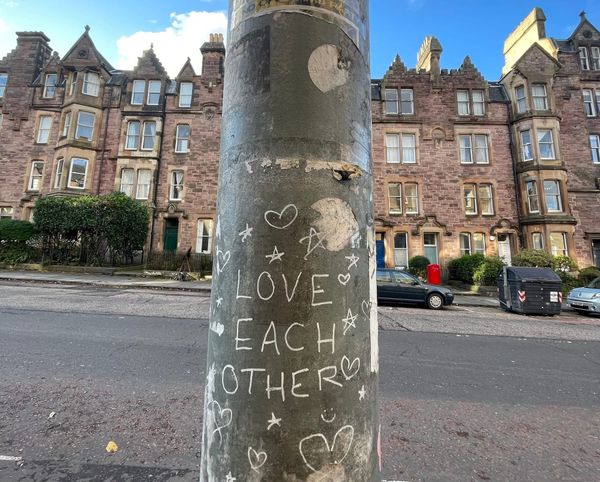 LOVE
EACH
OTHER